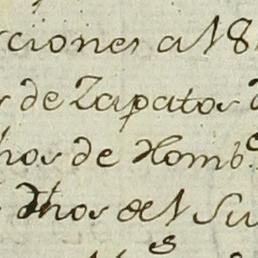 ciones a 18
de Zapatos
hos de Homb.e
Dhos del Su